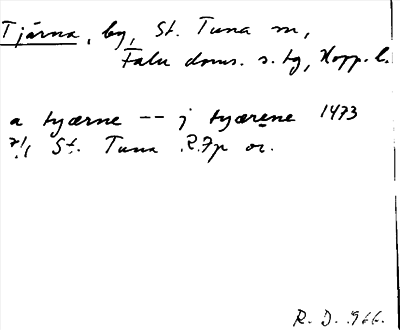 Tjärna, by, St. Tuna sn,
Falu doms. s. tg, Kopp. l.
a tyærne -- j tyærene 1473
7/1 St. Tuna R.Fp or.
R. D. 1966.